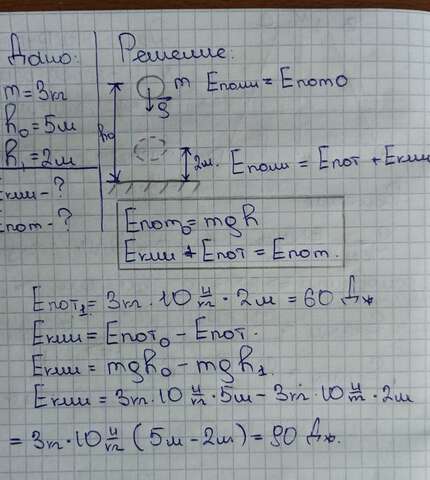 Дано:
Решение:
m = 3кг
h₀ = 5м
h₁ = 2м
Екин - ?
Епот - ?
m Еполн = Епот0
g
h₀
2м. Еполн = Епот + Екин
Епот₀ = mgh
Екин + Епот = Епот.
Епот₁ = 3кг · 10 н/кг · 2м = 60 Дж
Екин = Епот₀ - Епот.
Екин = mgh₀ - mgh₁.
Екин = 3кг · 10 н/кг · 5м - 3кг · 10 н/кг · 2м
= 3кг · 10 н/кг (5м - 2м) = 90 Дж.